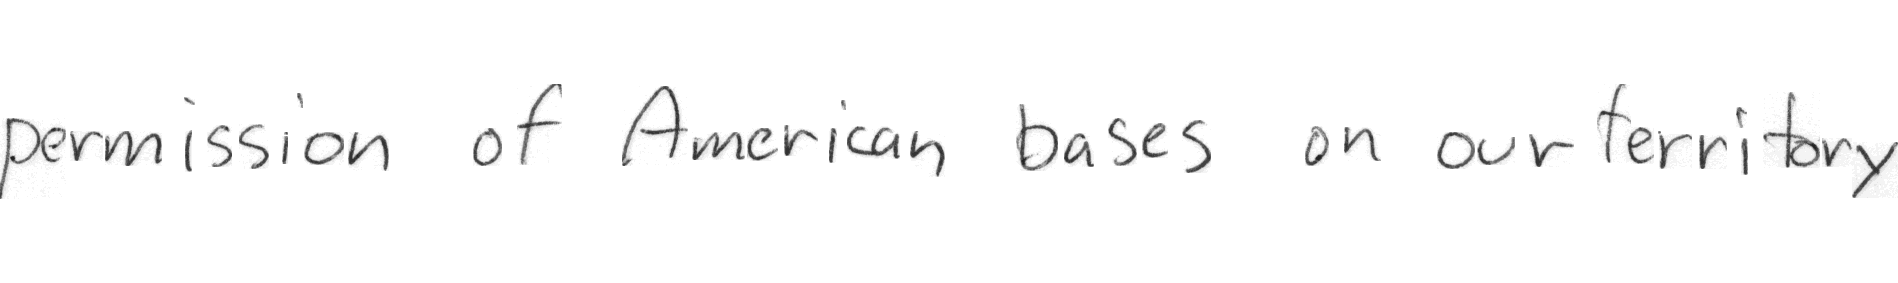 permission of American bases on our territory